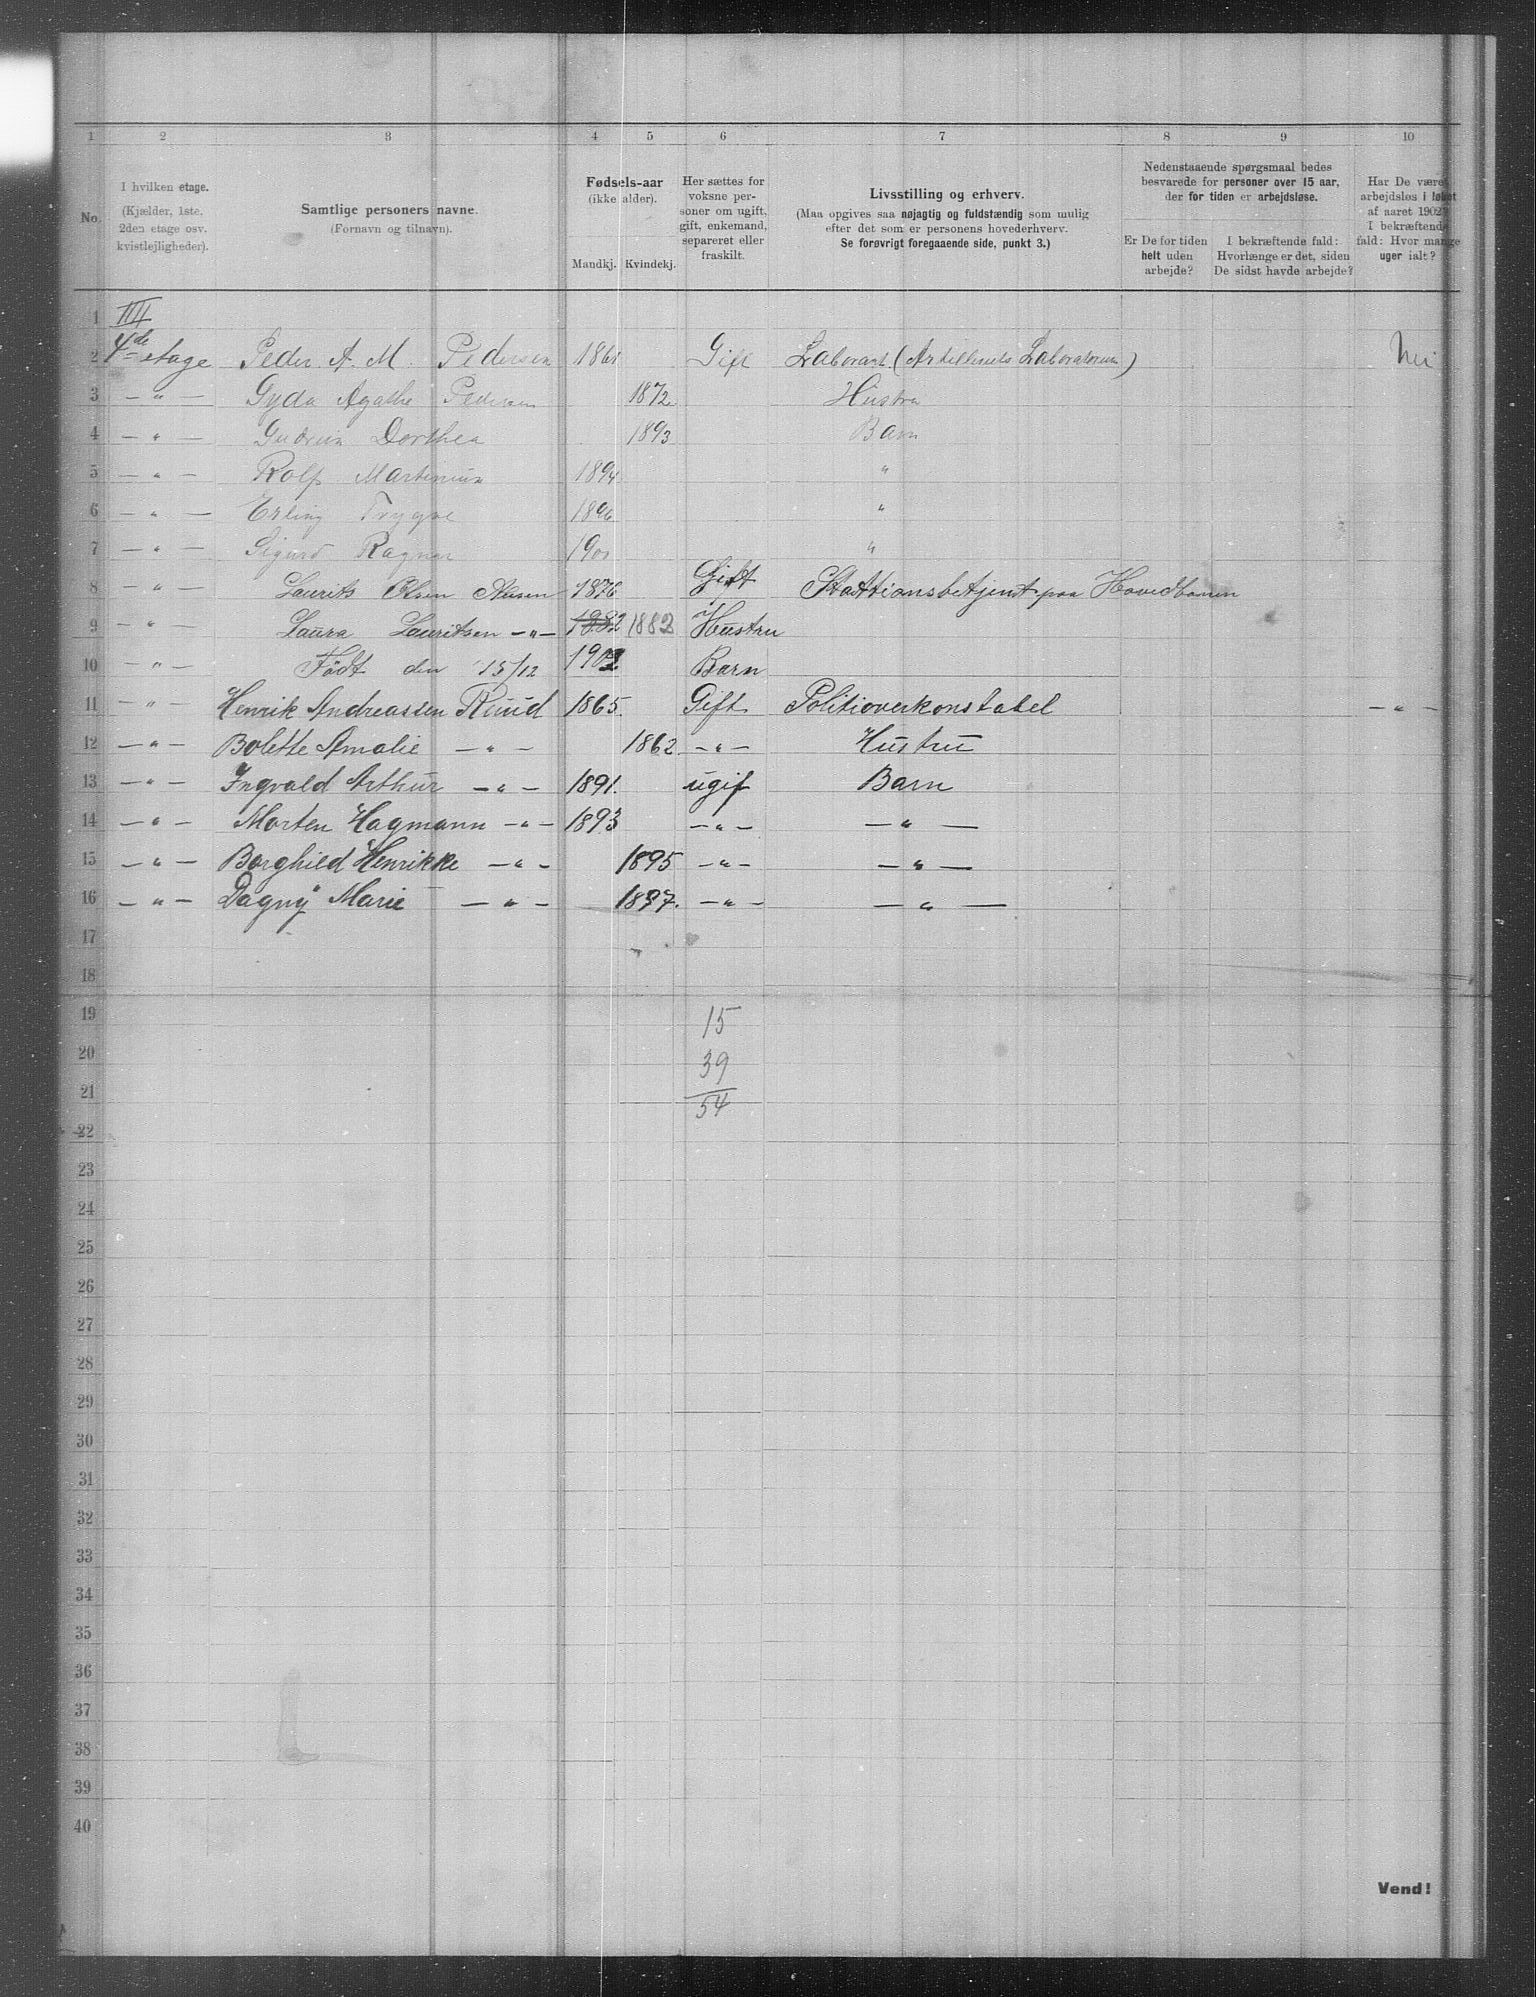 1 2 3 4 5 6 7 8 9 10
No.
I hvilken etage.
(Kjælder, 1ste,
2den etage osv.
kvistlejligheder).
Samtlige personers navne.
(Fornavn og tilnavn).
Fødsels-aar
(ikke alder).
Mandkj. Kvindekj.
Her sættes for
voksne per-
soner om ugift,
gift, enkemand,
separeret eller
fraskilt.
Livsstilling og erhverv.
(Maa opgives saa nøjagtig og fuldstændig som mulig
efter det som er personens hovederhverv.
Se forøvrigt foregaaende side, punkt 3.)
Nedenstaaende spørgsmaal bedes
besvarede for personer over 15 aar,
der for tiden er arbejdsløse.
Er De for tiden
helt uden
arbejde?
I bekræftende fald:
Hvorlænge er det, siden
De sidst havde arbejde?
Har De været
arbejdsløs i løbet
af aaret 1902?
I bekræftende
fald: Hvor mange
uger ialt?
1 IIII
2 4de etage Peder A. M. Pedersen 1861 Gift Laborant (Artilleriets Laboratorium) Nei
3 — " — Gyda Agathe Pedersen 1872 Hustru
4 — " — Gudrun Dorthea 1893 Barn
5 — " — Rolf Martinius 1894 "
6 — " — Erling Trygve 1896 "
7 — " — Sigurd Ragnar 190 "
8 — " — Laurits Olsen 1876 Gift Stattionsbetjent paa Hovedbanen
9 — " — Laura Lauritsen — " — 1882 1882 Hustru
10 — " — Født den 15/12 1902 Barn
11 — " — Henrik Andreassen Ruud 1865. Gift Politioverkonstabel — " —
12 — " — Bolette Amalie — " — 1862 — " — Hustru
13 — " — Ingvald Arthur — " — 1891. ugift Barn
14 — " — Morten Hagmann — " — 1893 — " — — " —
15 — " — Borghild Henrikke — " — 1895 — " — — " —
16 — " — Dagny Marie — " — 1897. — " — — " —
17
18
19 15
20 39
21 54
22
23
24
25
26
27
28
29
30
31
32
33
34
35
36
37
38
39
40
Vend!